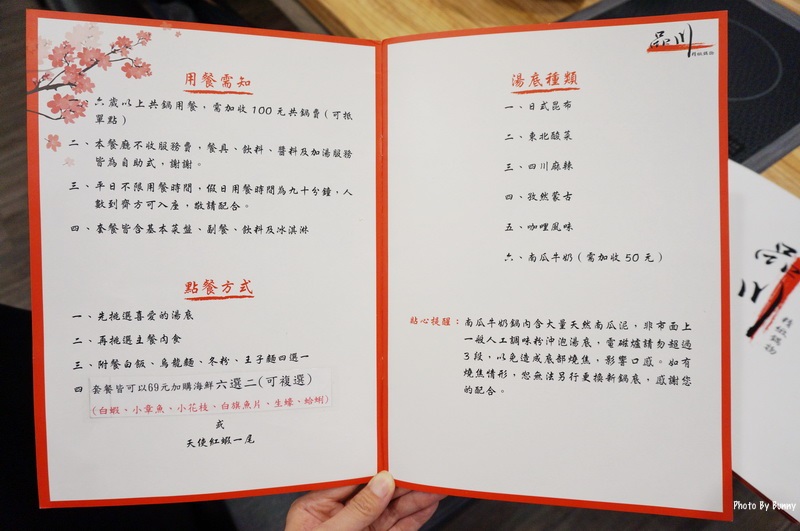 用餐需知
一、六歲以上共鍋用餐，需加收100元共鍋費(可抵
單點)
二、本餐廳不收服務費，餐具、飲料、醬料及加湯服務
皆為自助式，謝謝。
三、平日不限用餐時間，假日用餐時間為九十分鐘、人
數到齊方可入座，敬請配合。
四、套餐皆含基本菜盤、副餐、飲料及冰淇淋
點餐方式
一、先挑選喜愛的湯底
二、再挑選主餐肉食
三、附餐白飯、烏龍麵、冬粉、王子麵四選一
四 套餐皆可以69元加購海鮮六選二(可複選)
(白蝦、小章魚、小花枝、白旗魚片、生蠔、蛤蜊)
或
天使紅蝦一尾
品川
精緻鍋物
湯底種類
一、日式昆布
二、東北酸菜
三、四川麻辣
四、孜然蒙古
五、咖哩風味
六、南瓜牛奶(需加收50元)
貼心提醒：南瓜牛奶鍋內含大量天然南瓜泥，非市面上
一般人工調味粉沖泡湯底、電磁爐請勿超過
3段，以免造成底部燒焦，影響口感。如有
燒焦情形，您無法另行更換新鍋底，感謝您
的配合。
品川
精緻鍋物
Photo By Bunny